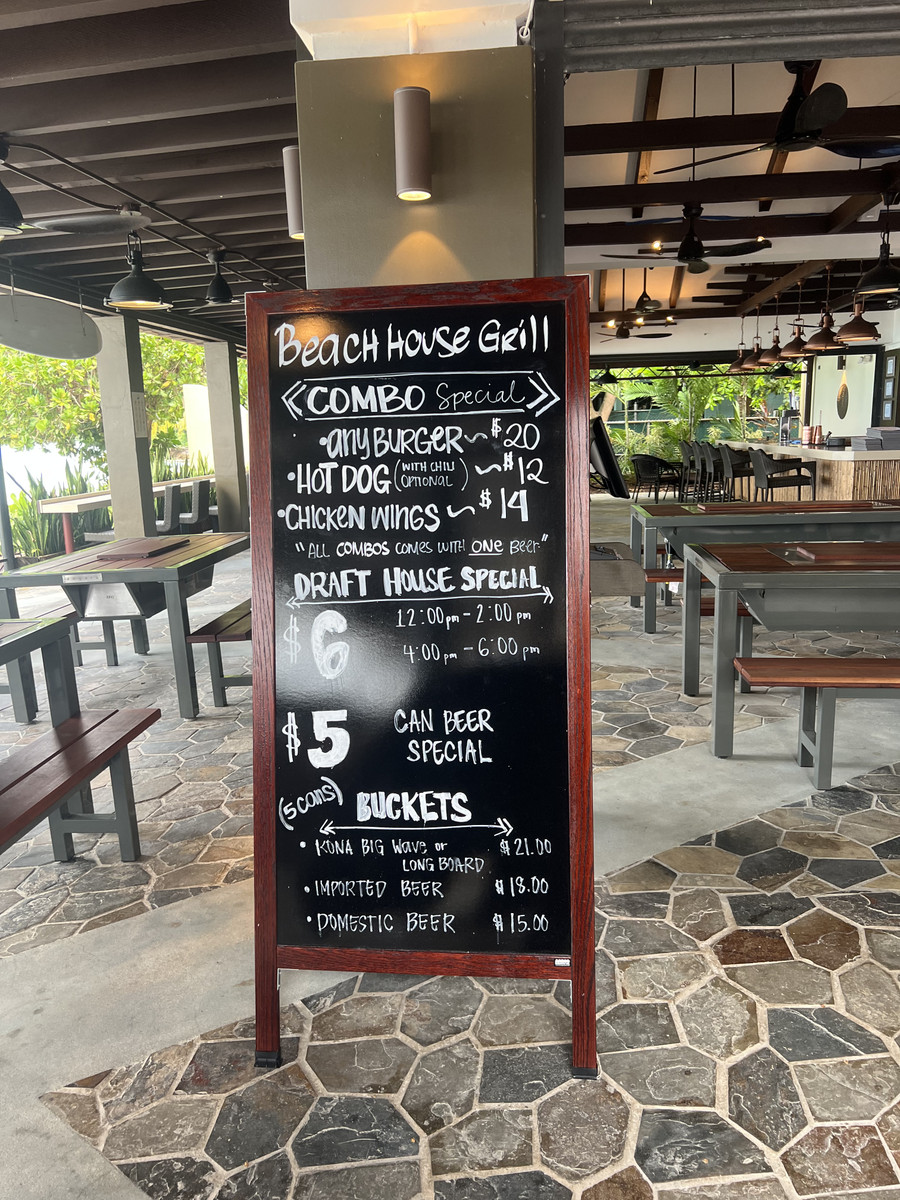 BEACH HOUSE GRILL
COMBO Special
• ANY BURGER ~ $20
• HOT DOG (WITH CHILI OPTIONAL) ~ $12
• CHICKEN WINGS ~ $14
"ALL COMBOS COMES WITH ONE Beer"
DRAFT HOUSE SPECIAL
$6 12:00pm - 2:00 pm
4:00 pm - 6:00 pm
$5 CAN BEER
SPECIAL
(5 cans) BUCKETS
• KONA BIG WAVE or $21.00
LONG BOARD
• IMPORTED BEER $18.00
• DOMESTIC BEER $15.00